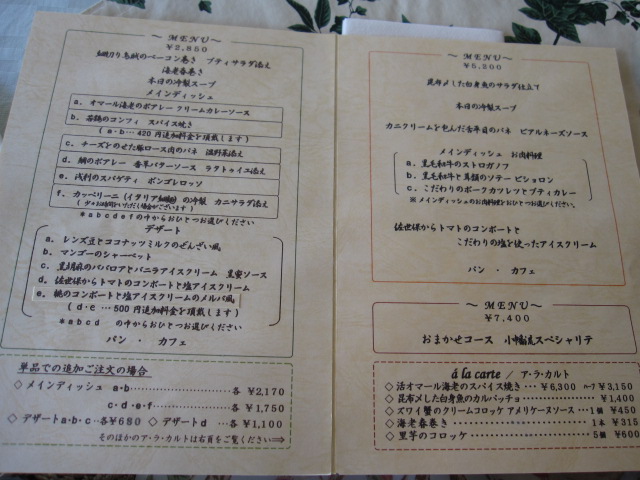 ～ MENU ～
￥2,850
細切り烏賊のベーコン巻き プティサラダ添え
海老春巻き
本日の冷製スープ
メインディッシュ
a. オマール海老のポアレー クリームカレーソース
b. 若鶏のコンフィ スパイス焼き
( a・b… 420 円追加料金を頂戴します )
c. チーズとのせた豚ロース肉のパネ 温野菜添え
d. 鯛のポアレー 香草バターソース ラタトゥイユ添え
e. 浅利のスパゲティ ボンゴレロッソ
f. カッペリーニ (イタリア細麺) の冷製 カニサラダ添え
( 少々お時間をいただく場合がございます )
*abcdef の中からおひとつお選びください
デザート
a. レンズ豆とココナッツミルクのぜんざい風
b. マンゴーのシャーベット
c. 黒胡麻のババロアとバニラアイスクリーム 黒蜜ソース
d. 佐世保からトマトのコンポートと塩アイスクリーム
e. 桃のコンポートと塩アイスクリームのメルバ風
( d・e …500 円追加料金を頂戴します )
*abcd の中からおひとつお選びください
パン ・ カフェ
単品での追加ご注文の場合
◇メインディッシュ a・b………………各 ￥2,170
c・d・e・f………………各 ￥1,750
◇デザートa・b・c…各￥680 ◇デザートd …￥1,100
そのほかのア・ラ・カルトは右頁をご覧ください⇒
～ MENU～
￥5,200
昆布〆した白身魚のサラダ仕立て
本日の冷製スープ
カニクリームを包んだ舌平目のパネ ピアルネーズソース
メインディッシュ お肉料理
a. 黒毛和牛のストロガノフ
b. 黒毛和牛と真鯛のソテー ピショロン
c. こだわりのポークカツレツとプティカレー
※メインディッシュのお肉料理をおひとつお選びください
佐世保からトマトのコンポートと
こだわりの塩を使ったアイスクリーム
パン ・ カフェ
～ MENU～
￥7,400
おまかせコース 小幡流スペシャリテ
á la carte / ア・ラ・カルト
◇活オマール海老のスパイス焼き・・・￥6,300 ハーフ ￥3,150
◇昆布〆した白身魚のカルパッチョ・・・・・・・・・￥1,400
◇ズワイ蟹のクリームコロッケ アメリケースソース・・・1個 ￥450
◇海老春巻き・・・・・・・・・・・・・・・・・・1本 ￥315
◇里芋のコロッケ・・・・・・・・・・・・・・・・5個 ￥600